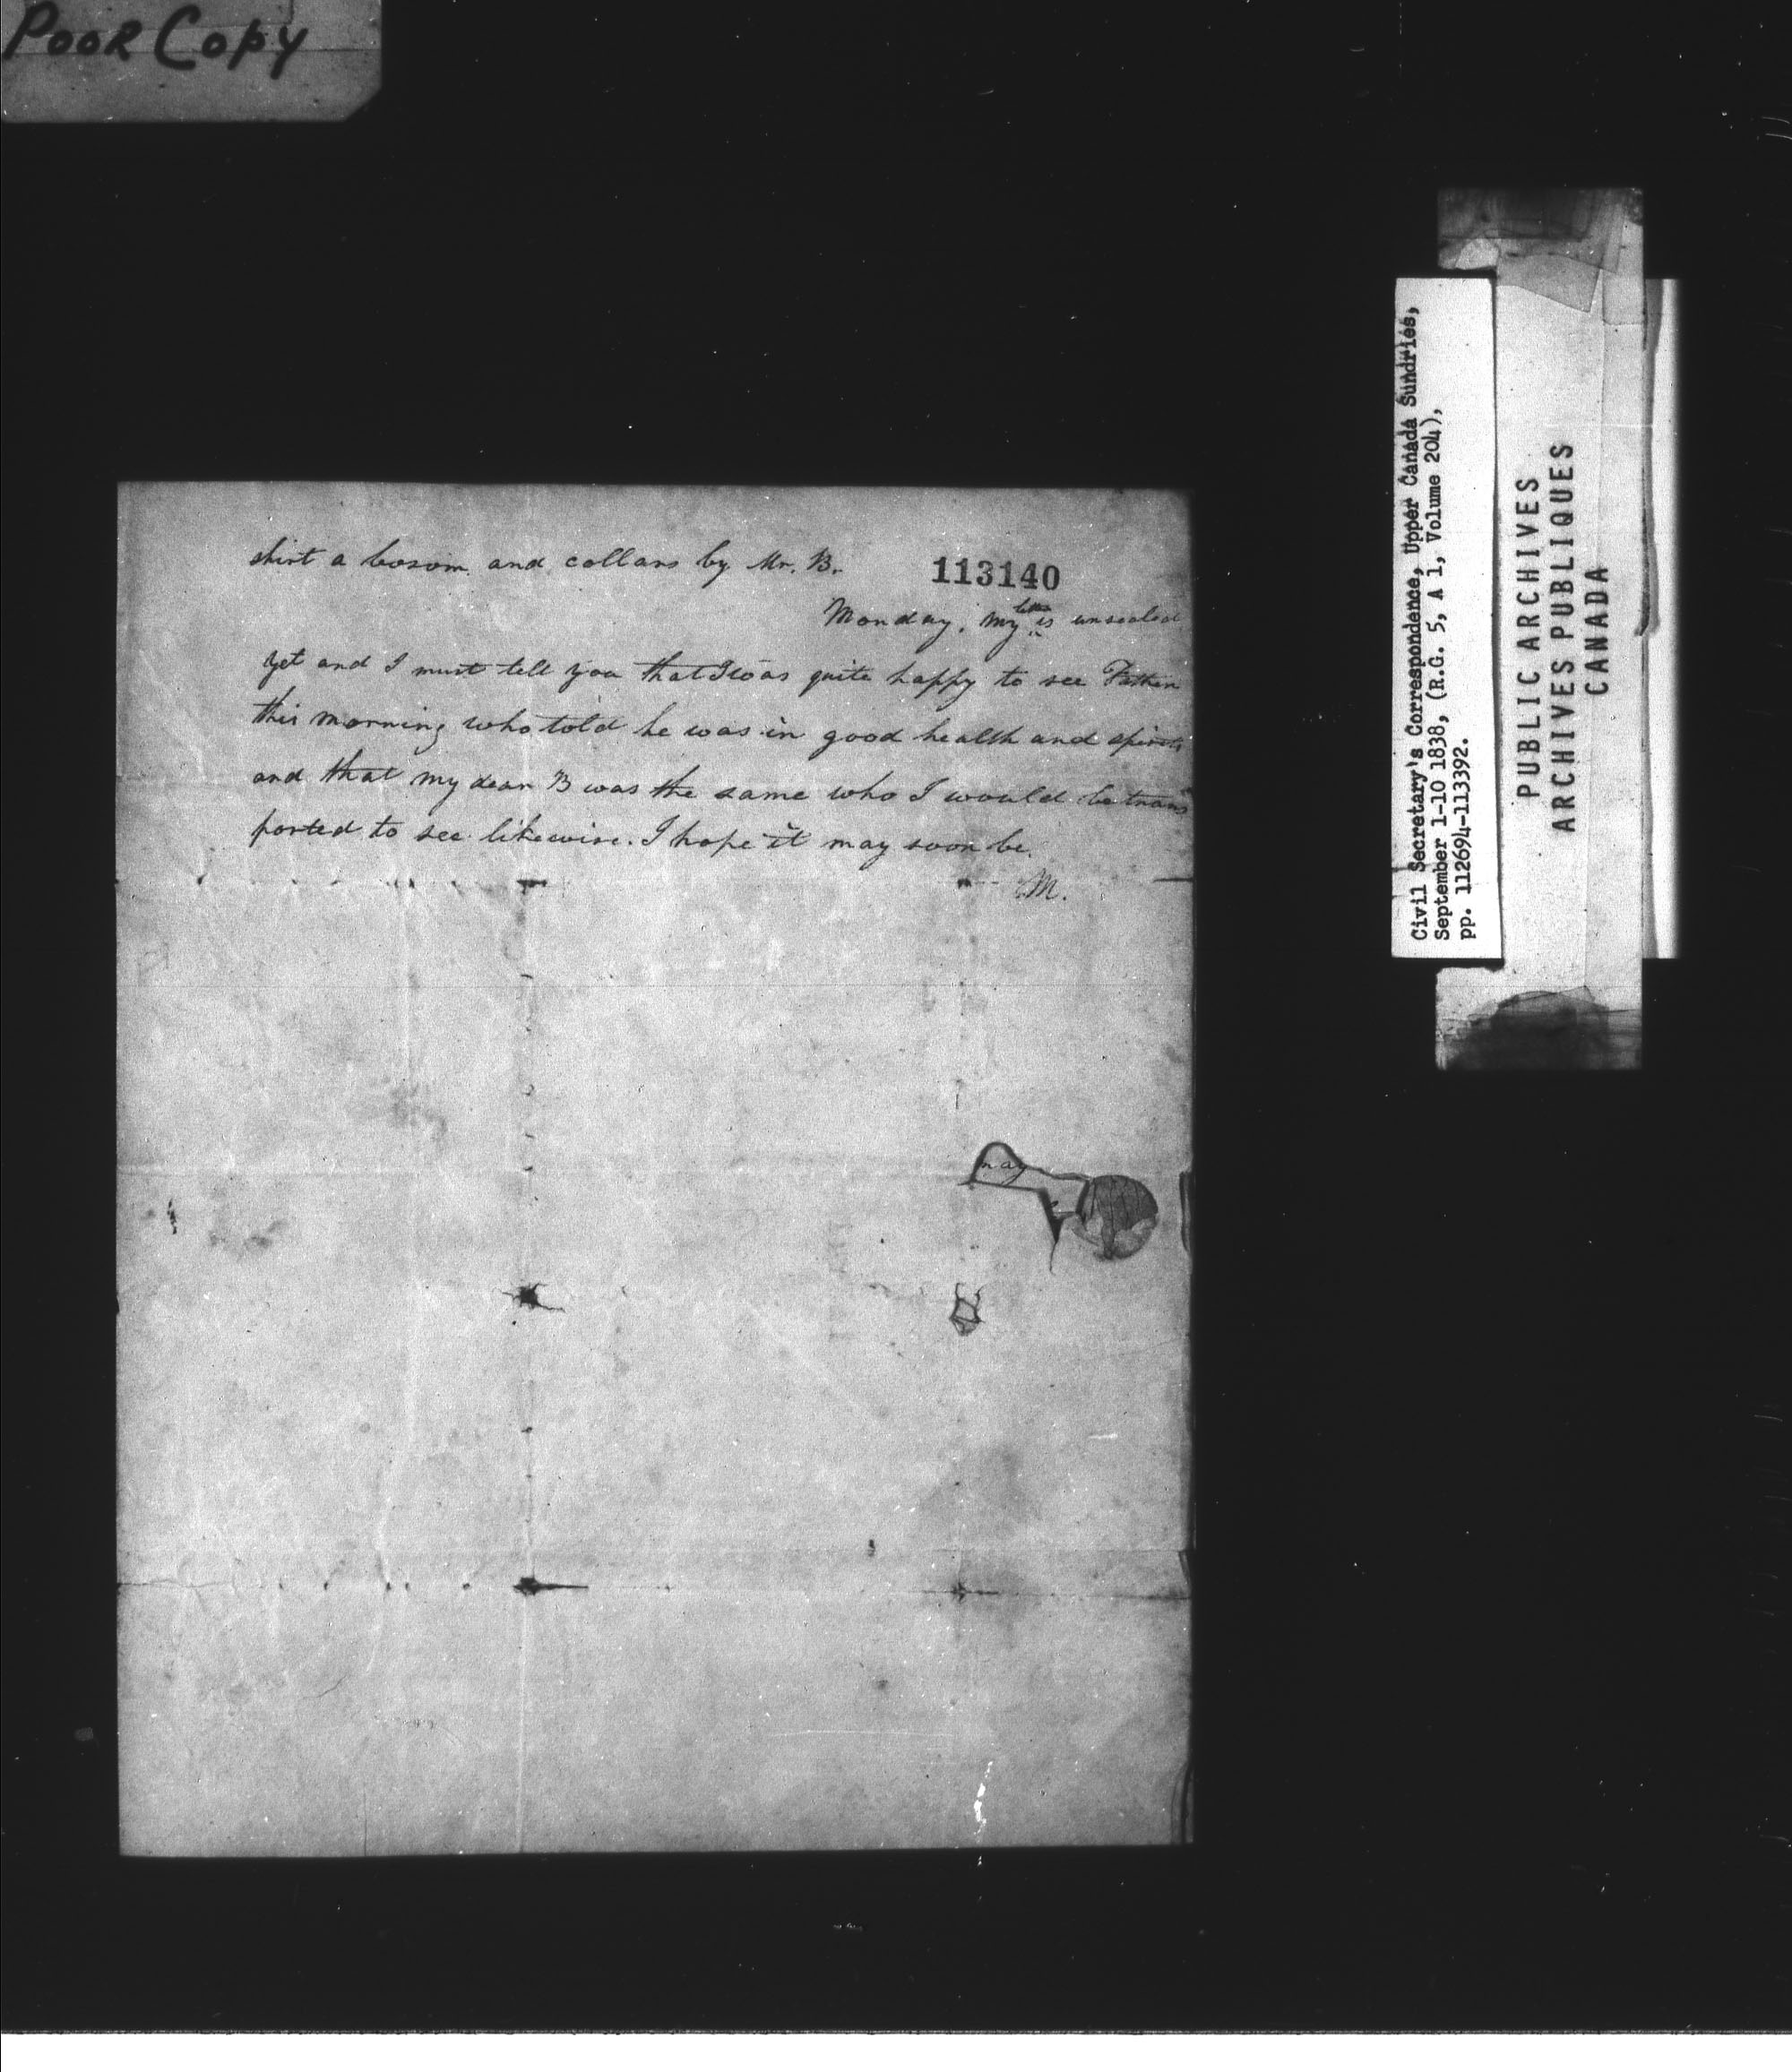 POOR COPY
shirt a bosom and collars by Mr. B.
113140
Monday, my letter is unsealed
yet and I must tell you that I was quite happy to see Father
this morning who told he was in good health and spirits
and that my dear B was the same who I would be trans
ported to see likewise. I hope it may soon be.
M.
may
Civil Secretary's Correspondence, Upper Canada Sundries,
September 1-10 1838, (R.G. 5, A 1, Volume 204),
pp. 112694-113392.
PUBLIC ARCHIVES
ARCHIVES PUBLIQUES
CANADA